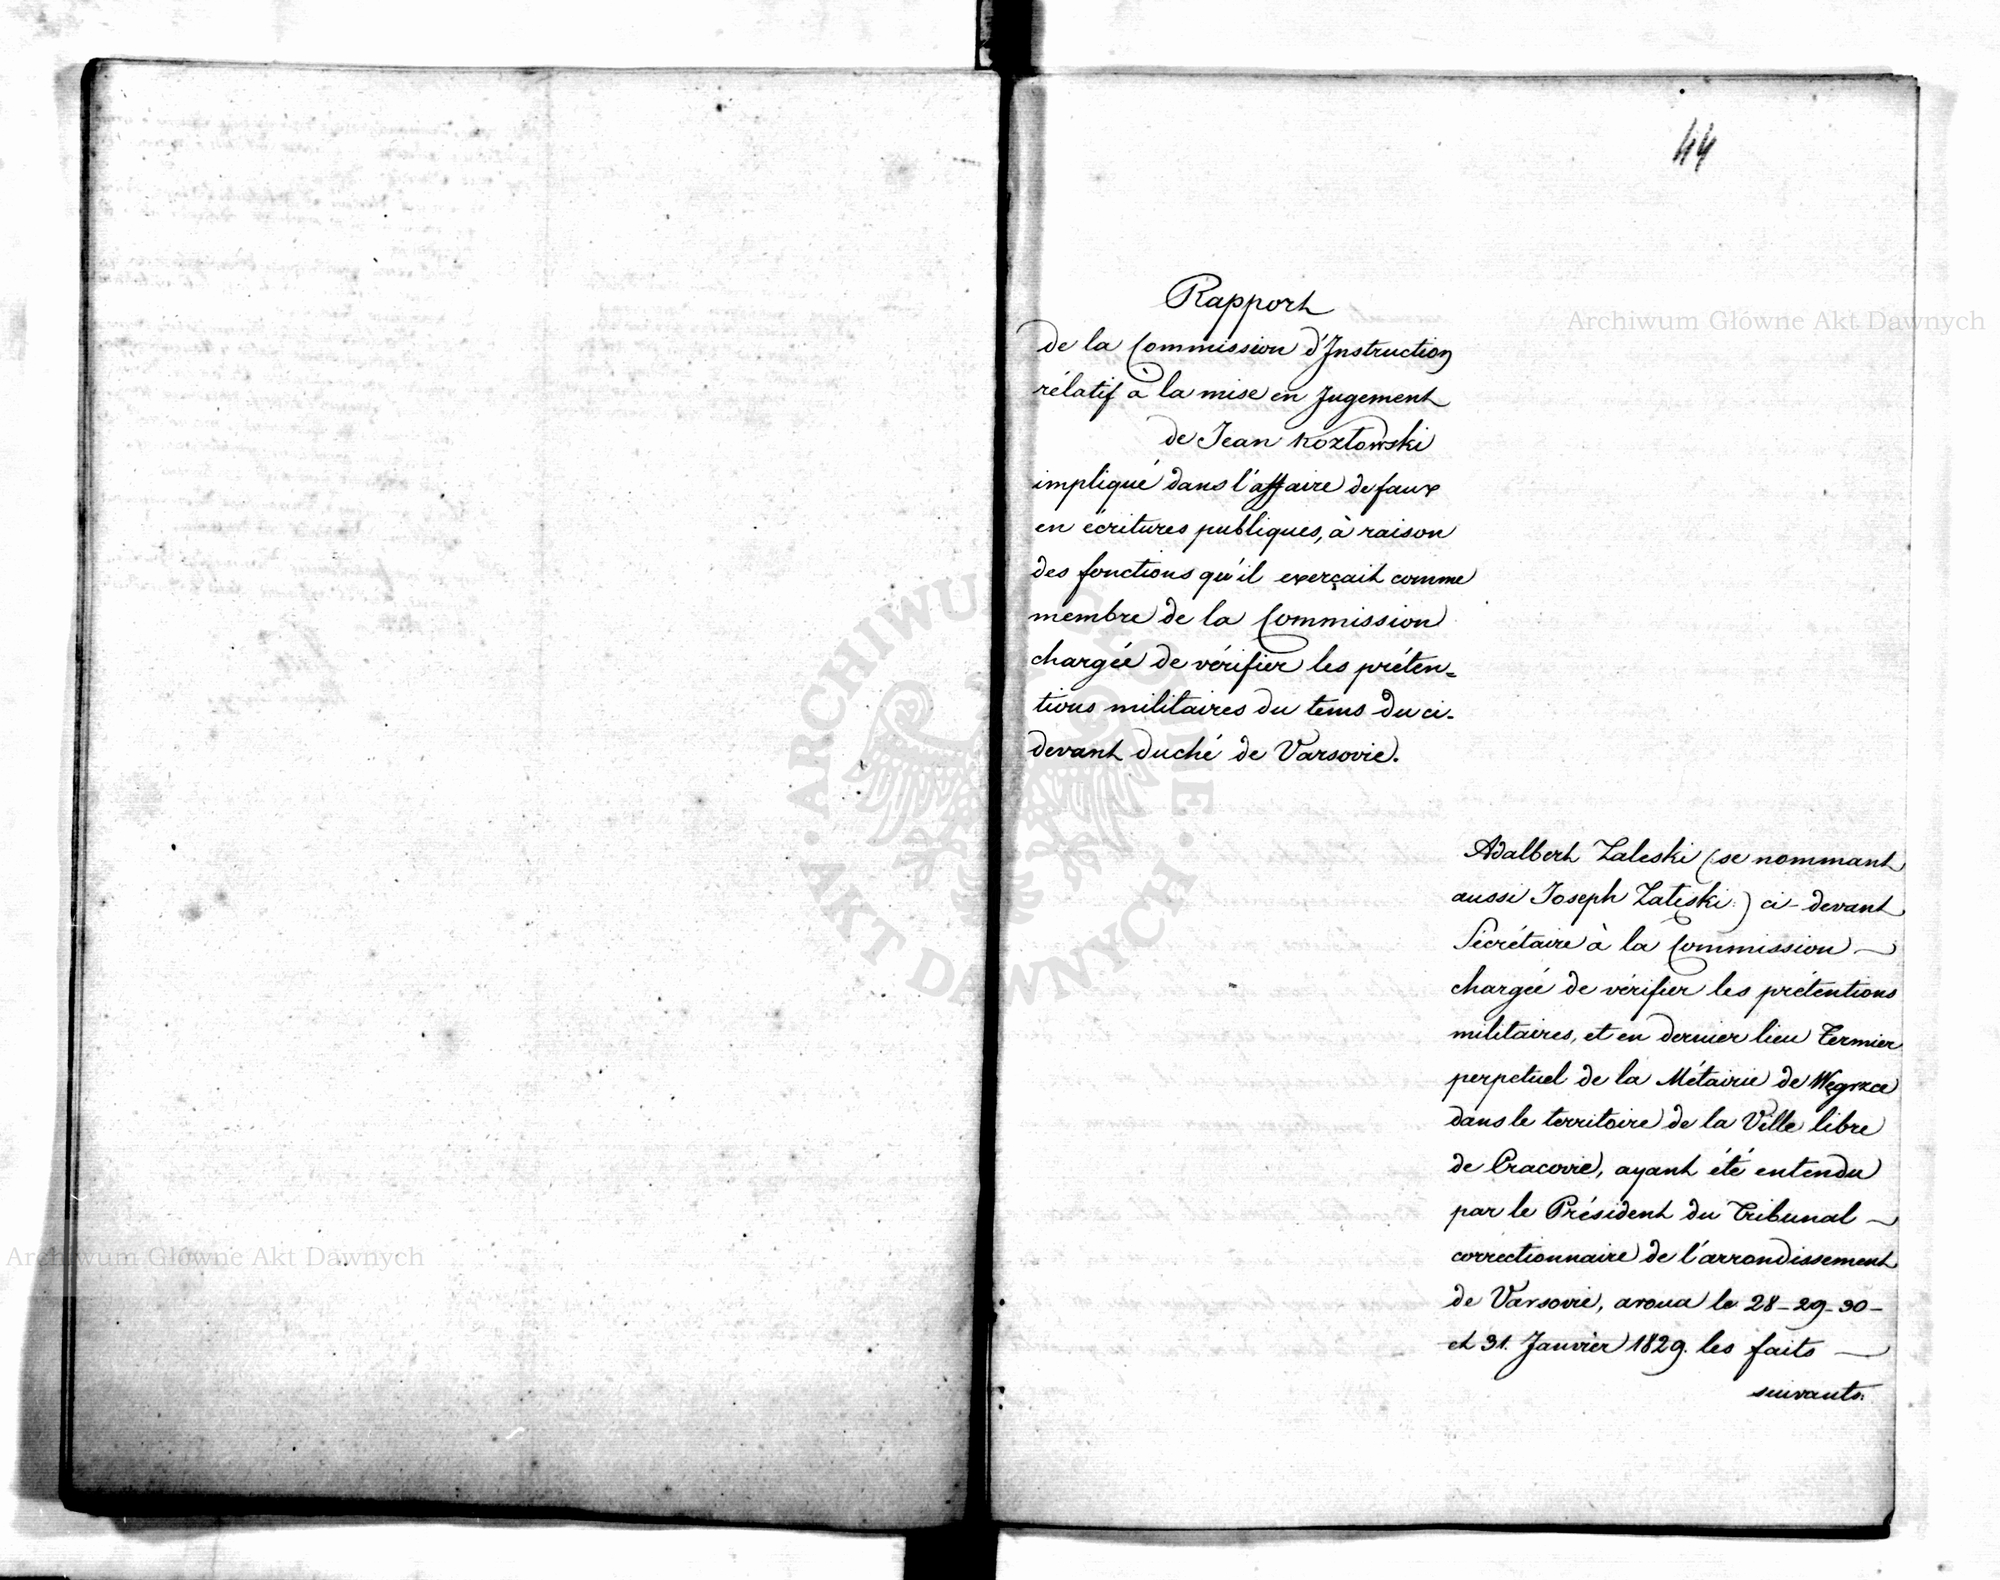 44
Rapport
de la Commission d'Instruction
rélatif à la mise en Jugement
de Jean Kozłowski
impliqué dans l'affaire de faux
en écritures publiques, à raison
des fonctions qu'il exerçait comme
membre de la Commission
chargée de vérifier les préten-
tions militaires du tems du ci-
devant duché de Varsovie.
Adalbert Zaleski (se nommant
aussi Joseph Załęski) ci-devant
Sécrétaire à la Commission
chargée de vérifier les prétentions
militaires, et en dernier lieu Fermier
perpetuel de la Métairie de Węgrzce
dans le territoire de la Ville libre
de Cracovie, ayant été entendu
par le Président du Tribunal
correctionnaire de l'arrondissement
de Varsovie, avoua le 28-29-30-
et 31. Janvier 1829. les faits
suivants.
Archiwum Główne Akt Dawnych
Archiwum Główne Akt Dawnych
ARCHIWUM GŁÓWNE · AKT DAWNYCH ·